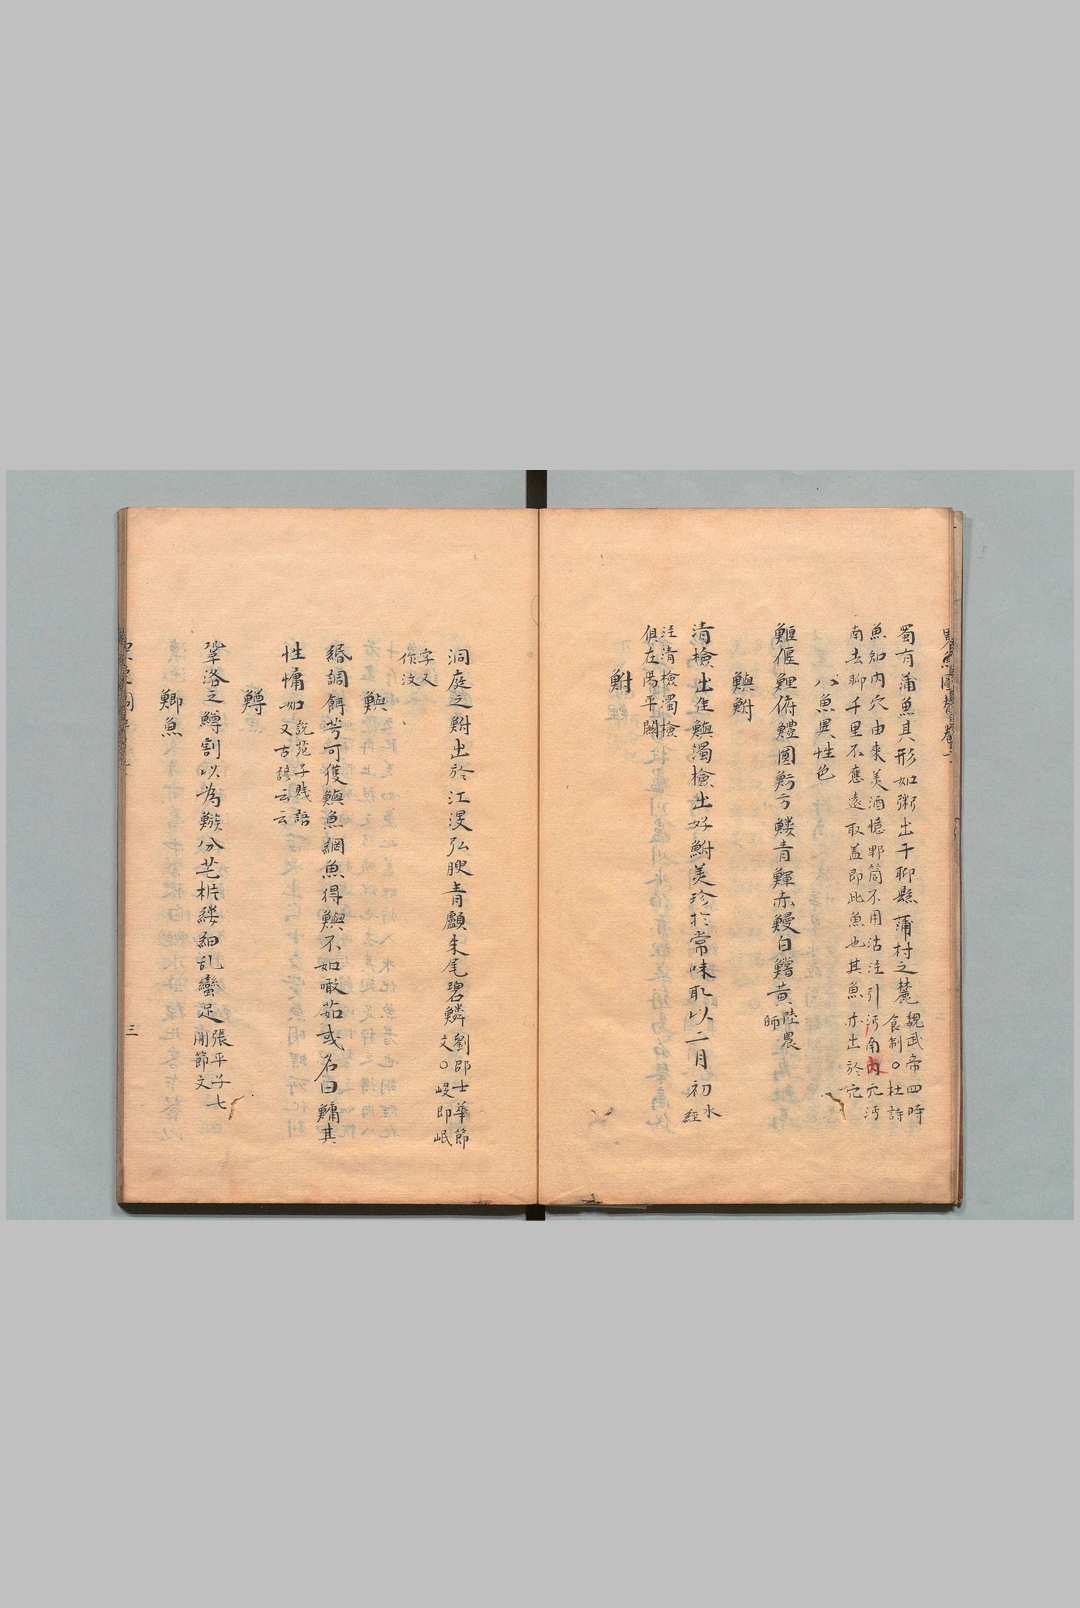 異魚圖贊卷三
蜀有蒲魚其形如粥出于郫縣蒲村之麓魏武帝四時食制○杜詩
魚知丙穴由來美酒憶郫筒不用沽注引沔南丙穴沔
南去郫千里不應遠取蓋即此魚也其魚亦出於穴
八魚異性色
䱇偃鯉俯鱧圓魴方鰱青鯶赤鰻白鱨黃陸農師
鱮鮒
清檢出佳鱮濁檢出好鮒美珍於常味取以二月初水經
注清檢濁檢
俱在房平闕
鮒
洞庭之鮒出於江浸弘腴青顱朱尾碧鱗劉邵士華節文○岐即岷
字又
作汶
鱮
緡調餌芳可獲鱮魚網魚得鱮不如噉茹或名曰鱅其
性慵如說苑子賤語又古諺云云
鱒
鞏洛之鱒割以為鮮分芒析縷細乱蠻足張平子七
開節文
鯽魚
三